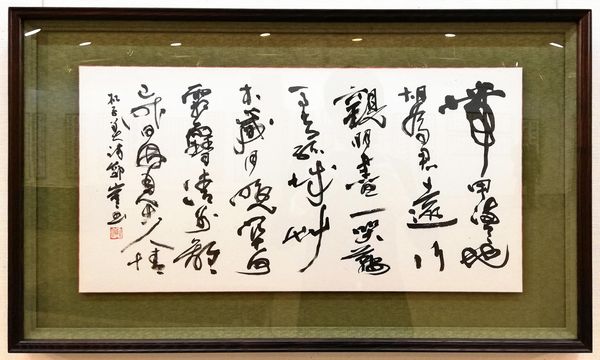 帶甲滿天地
胡為君遠行
親朋盡一哭鞍
馬去孤城草
木歲月晚關河
霜雪清別離
已昨日因見古人情
杜子美詩鄭書